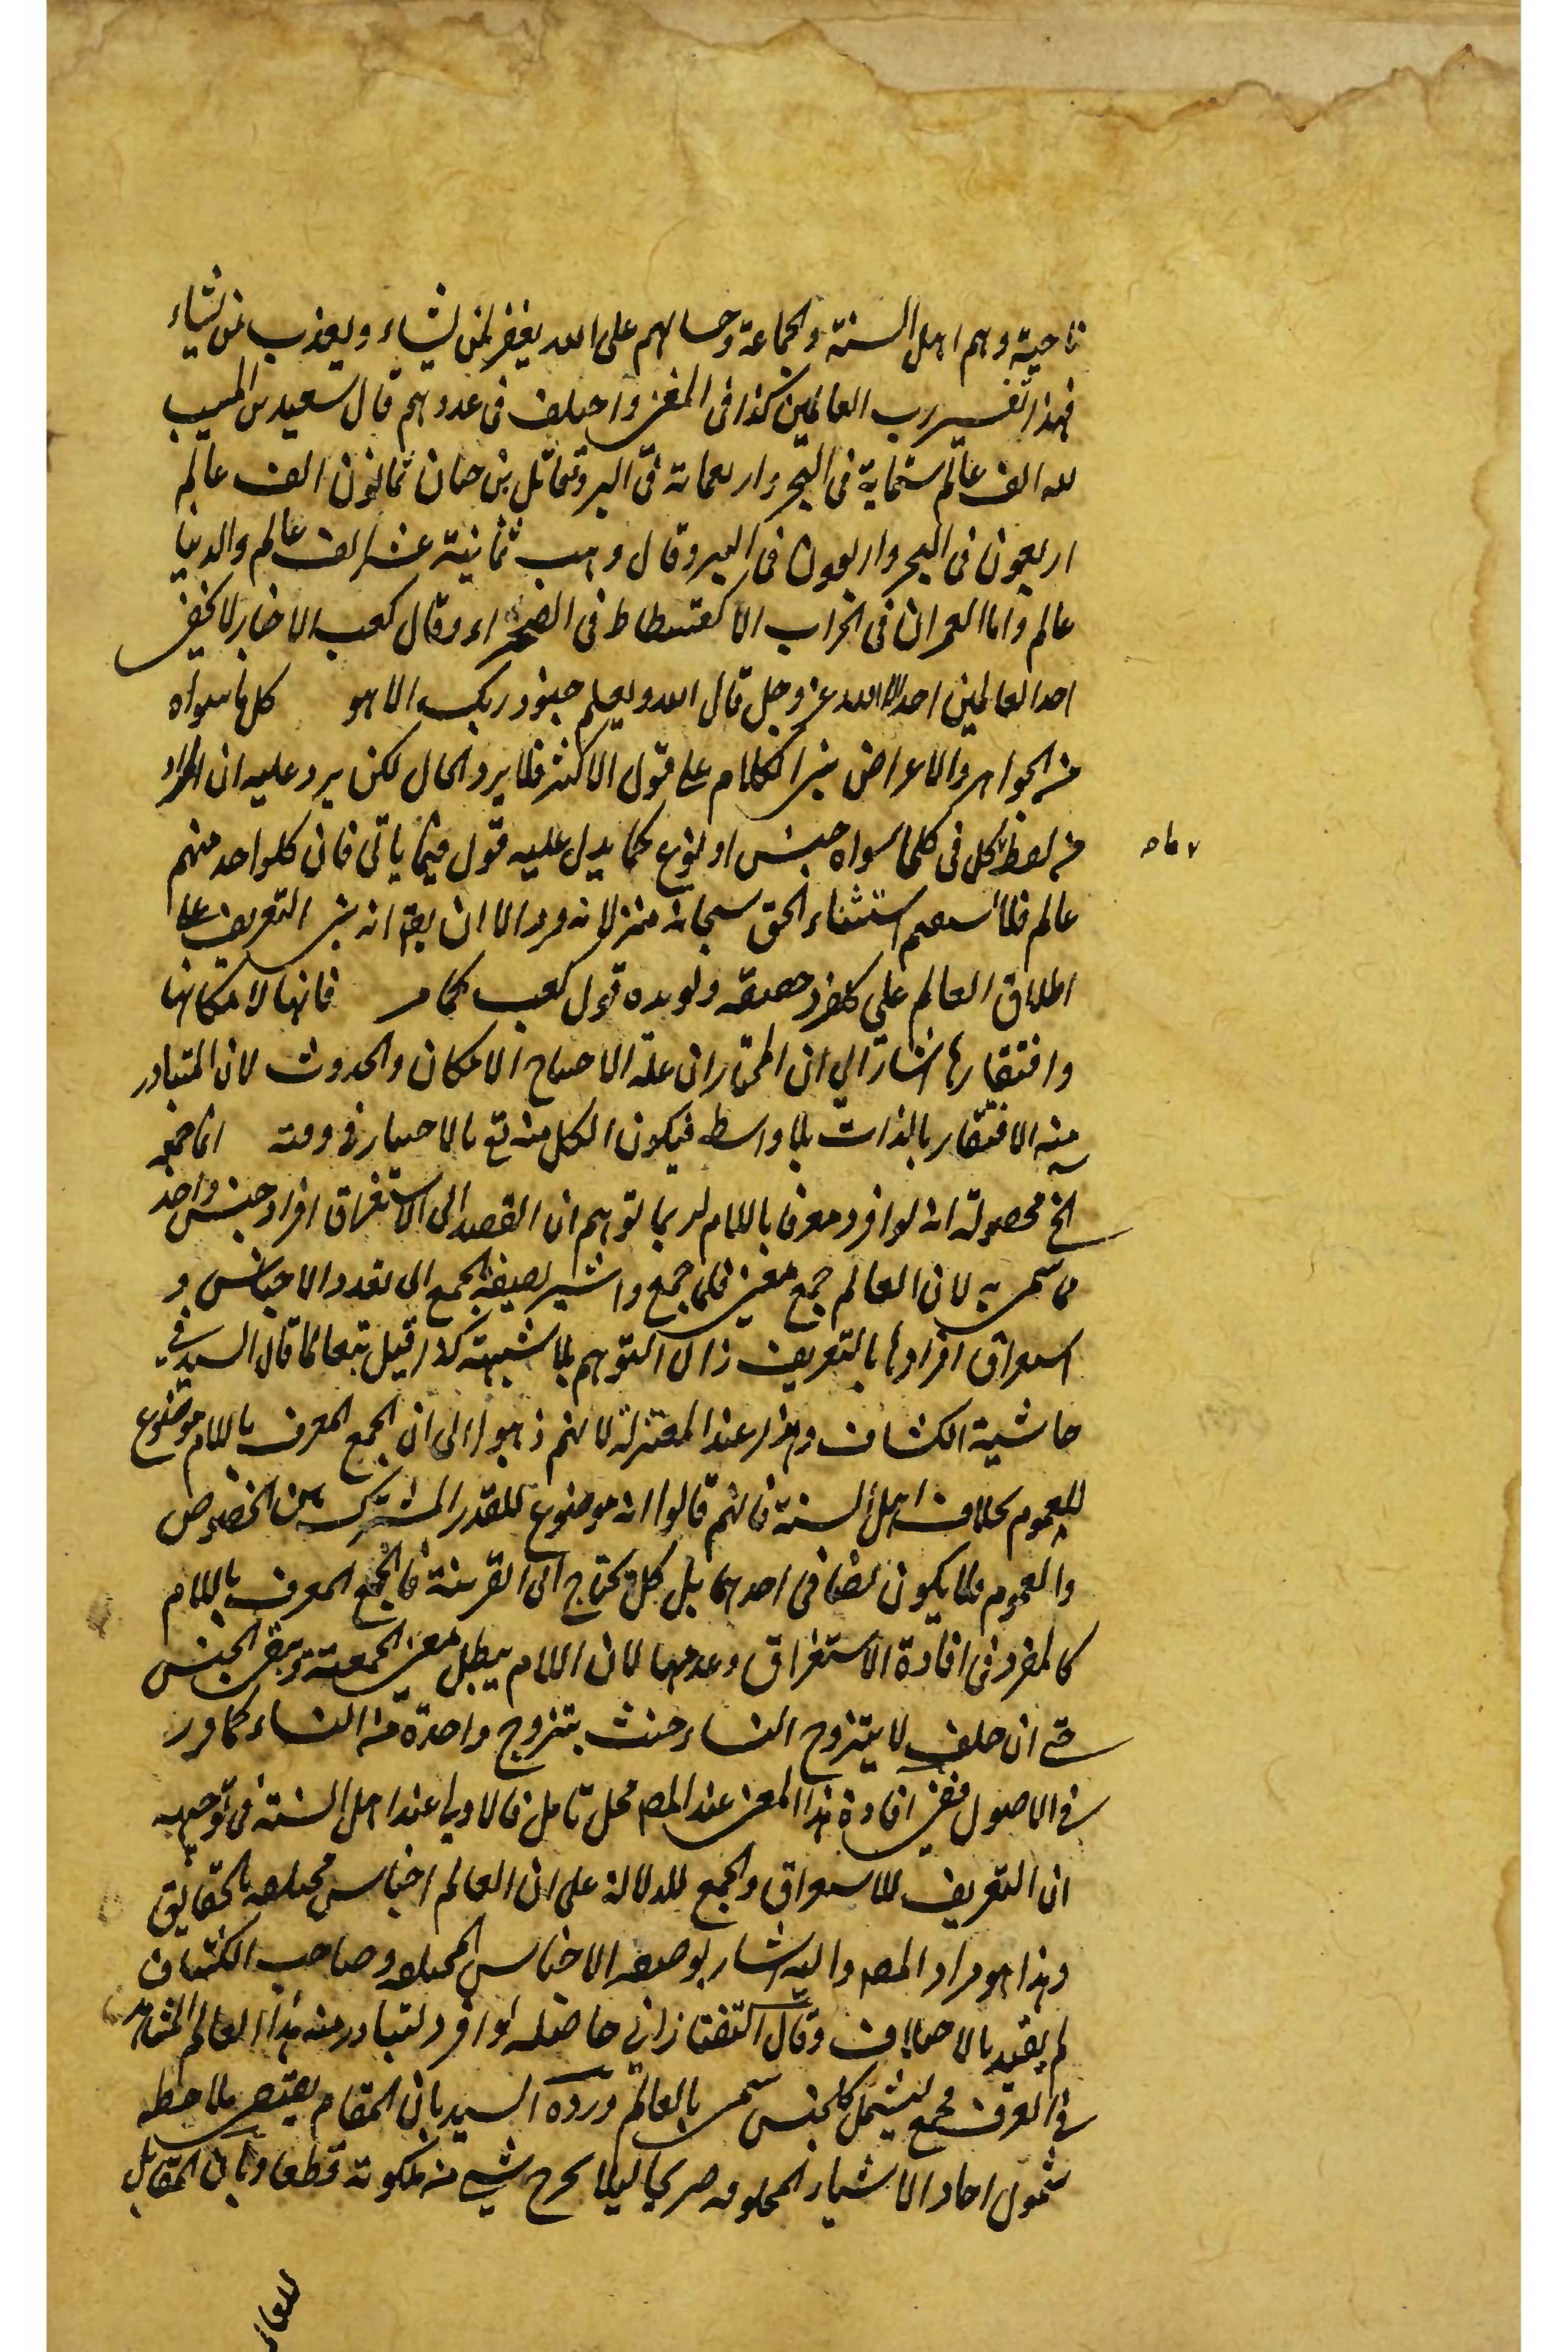 ناجية وهم اهل السنة والجماعة وحسابهم على الله يغفر لمن يشاء ويعذب من يشاء
فهذا تفسير رب العالمين كذا فى المغنى واختلف فى عددهم قال سعيد بن المسيب
لله الف عالم ستماية فى البحر واربعماية فى البر وقال مقاتل بن حيان ثمانون الف عالم
اربعون فى البحر واربعون فى البر وقال وهب ثمانية عشر الف عالم والدنيا
عالم واما العمران فى الخراب الا كفسطاط فى الصحراء وقال كعب الاخبار لا يحصى
احد العالمين احد الا الله عز وجل قال الله وما يعلم جنود ربك الا هو كل ما سواه
من الجواهر والاعراض بنى الكلام على قول الاكثر فلا يرد الحال لكن يرد عليه ان المراد
من لفظ كل فى كل ما سواه جنس او نوع كما يدل عليه قوله فيما ياتى فان كل واحد منهم
عالم فلا يستقيم استثناء الحق سبحانه منه لانه فرد الا ان يقال انه بنى التعريف على
اطلاق العالم على كل فرد حقيقة ويؤيده قول كعب كما مر فانها لامكانها
وافتقارها اشارة الى ان المختار ان علة الاحتياج الامكان والحدوث لان المتبادر
منه الافتقار بالذات بلا واسطه فيكون الكل منه تع بالاختيار فى وقته انما جمعه
الخ محصوله انه لو افرد معرفا باللام لربما توهم ان القصد الى الاستغراق افراد جنس واحد
مما سمى به لان العالم جمع معنى فلما جمع واشير بصيغة الجمع الى تعدد الاجناس و
استغراق افرادها بالتعريف زال التوهم بلا شبهة كذا قيل تبعا لما قال السيد فى
حاشية الكشاف وهذا عند المعتزلة لانهم ذهبوا الى ان الجمع المعرف باللام موضوع
للعموم بخلاف اهل السنة فانهم قالوا انه موضوع للقدر المشترك بين الخصوص
والعموم فلا يكون نصا فى احدهما بل كل يحتاج الى القرينة فالجمع المعرف باللام
كالمفرد فى افادة الاستغراق وعدمها لان اللام يبطل معنى الجمعية ويبقى الجنس
حتى ان حلف لا يتزوج النساء حنث بتزوج واحدة من النساء كما ورد
فى الاصول ففى افادة هذا المعنى عند المص محل تامل فالاولى عند اهل السنة فى توجيهه
ان التعريف للاستغراق والجمع للدلالة على ان العالم اجناس مختلفة بالحقايق
وهذا هو مراد المص واليه اشار بوصفه الاجناس المختلفة وصاحب الكشاف
لم يقيد بالاختلاف وقال التفتازانى حاصله لو افرد لتبادر منه هذا العالم المشاهد
فى العرف فجمع ليشمل كل جنس سمى بالعالم ورده السيد بان المقام يقتضى ملاحظة
شمول احاد الاشياء المخلوقة صريحا ليلا يخرج شيئ من ملكوته قطعا وبان المقابل